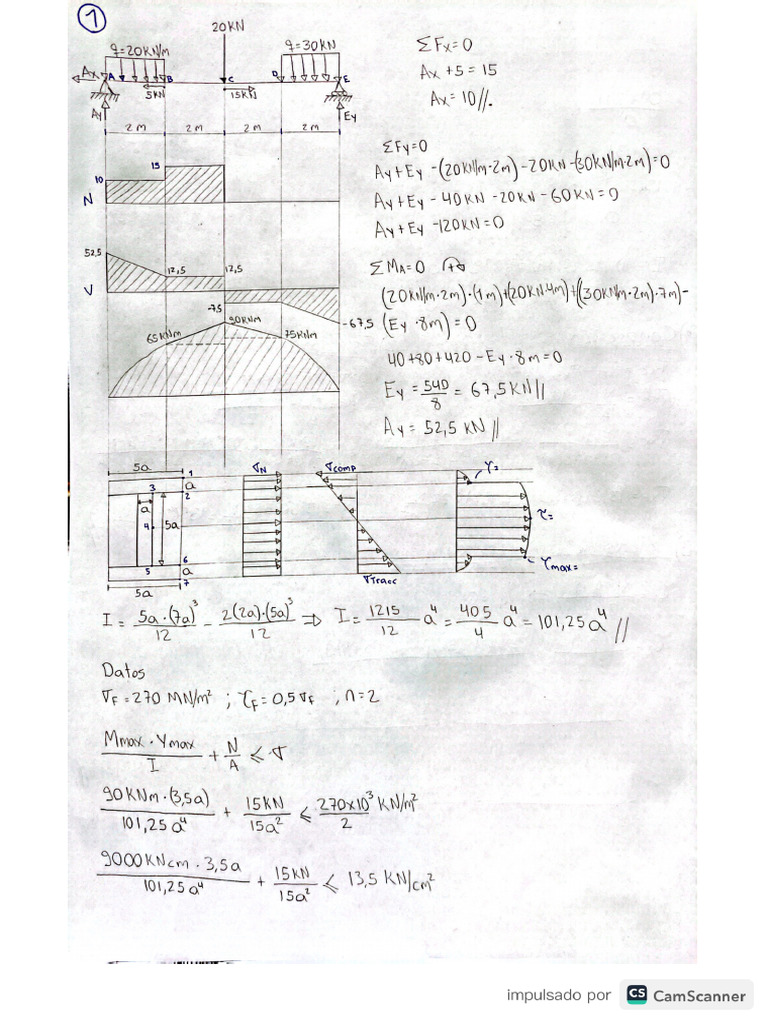 1
20KN
q=20KN/m
q=30KN
Ax A B C D E
5KN 15KN
Ay Ey
2m 2m 2m 2m
ΣFx=0
Ax +5 = 15
Ax= 10//.
ΣFy=0
Ay+Ey -(20KN/m·2m)-20KN-(30KN/m·2m)=0
Ay+Ey - 40KN -20KN - 60KN = 0
Ay+Ey -120KN = 0
10 15
N
52,5 12,5 12,5
V
-7,5
-67,5
65KNm 90KNm 75KNm
ΣMA=0
(20KN/m·2m)·(1m)+(20KN·4m)+((30KN/m·2m)·7m)-
(Ey·8m)=0
40+80+420 - Ey·8m=0
Ey = 540/8 = 67,5KN//
Ay= 52,5 KN //
5a 1
a
3 2
a
4 5a
5 6
a
7
5a
σN
σcomp
σtracc
τ=
τ=
τmax=
I = 5a·(7a)³/12 - 2(2a)·(5a)³/12 ⇒ I= 1215/12 a⁴ = 405/4 a⁴ = 101,25a⁴ //
Datos
σF=270 MN/m² ; τF=0,5σF ; n=2
Mmax·Ymax/I + N/A ⩽ σ
90KNm·(3,5a)/101,25a⁴ + 15KN/15a² ⩽ 270x10³ KN/m²/2
9000KNcm·3,5a/101,25a⁴ + 15KN/15a² ⩽ 13,5 KN/cm²
impulsado por CS CamScanner